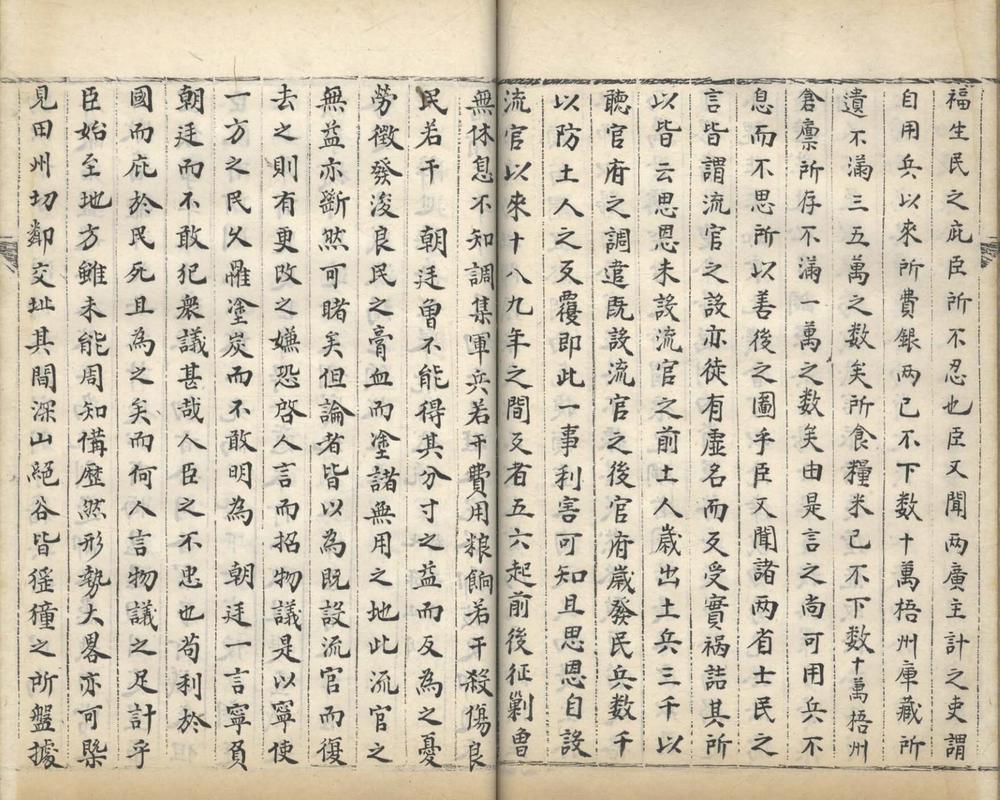 福生民之庇臣所不忍也臣又聞两廣主計之吏謂
自用兵以來所費銀两已不下数十萬梧州庫藏所
遺不滿三五萬之数矣所食糧米已不下数十萬梧州
倉廪所存不滿一萬之数矣由是言之尚可用兵不
息而不思所以善後之圖乎臣又聞諸两省士民之
言皆謂流官之設亦徒有虚名而反受實禍詰其所
以皆云思恩未設流官之前土人歲出土兵三千以
聽官府之調遣既設流官之後官府歲發民兵数千
以防土人之反覆即此一事利害可知且思恩自設
流官以來十八九年之間反者五六起前後征剿曾
無休息不知調集軍兵若干費用粮餉若干殺傷良
民若干朝廷曾不能得其分寸之益而反為之憂
勞徵發浚良民之膏血而塗諸無用之地此流官之
無益亦斷然可睹矣但論者皆以為既設流官而復
去之則有更改之嫌恐啓人言而招物議是以寧使
一方之民久罹塗炭而不敢明為朝廷一言寧負
朝廷而不敢犯衆議甚哉人臣之不忠也苟利於
國而庇於民死且為之矣而何人言物議之足計乎
臣始至地方雖未能周知備歴然形勢大畧亦可槩
見田州切鄰交址其間深山絕谷皆猺獞之所盤據